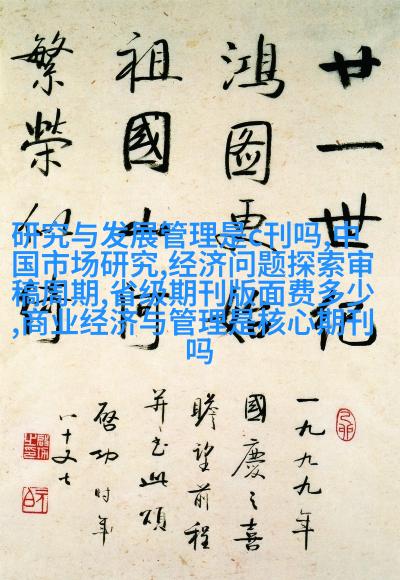 廿一世紀
鴻圖更
祖國山河
繁榮似
一九九九年
國慶之喜
瞻望前程
并书此頌
啓功時年
八十又七
研究与发展管理是c刊吗,中
国市场研究,经济问题探索审
稿周期,省级期刊版面费多少
,商业经济与管理是核心期刊
吗